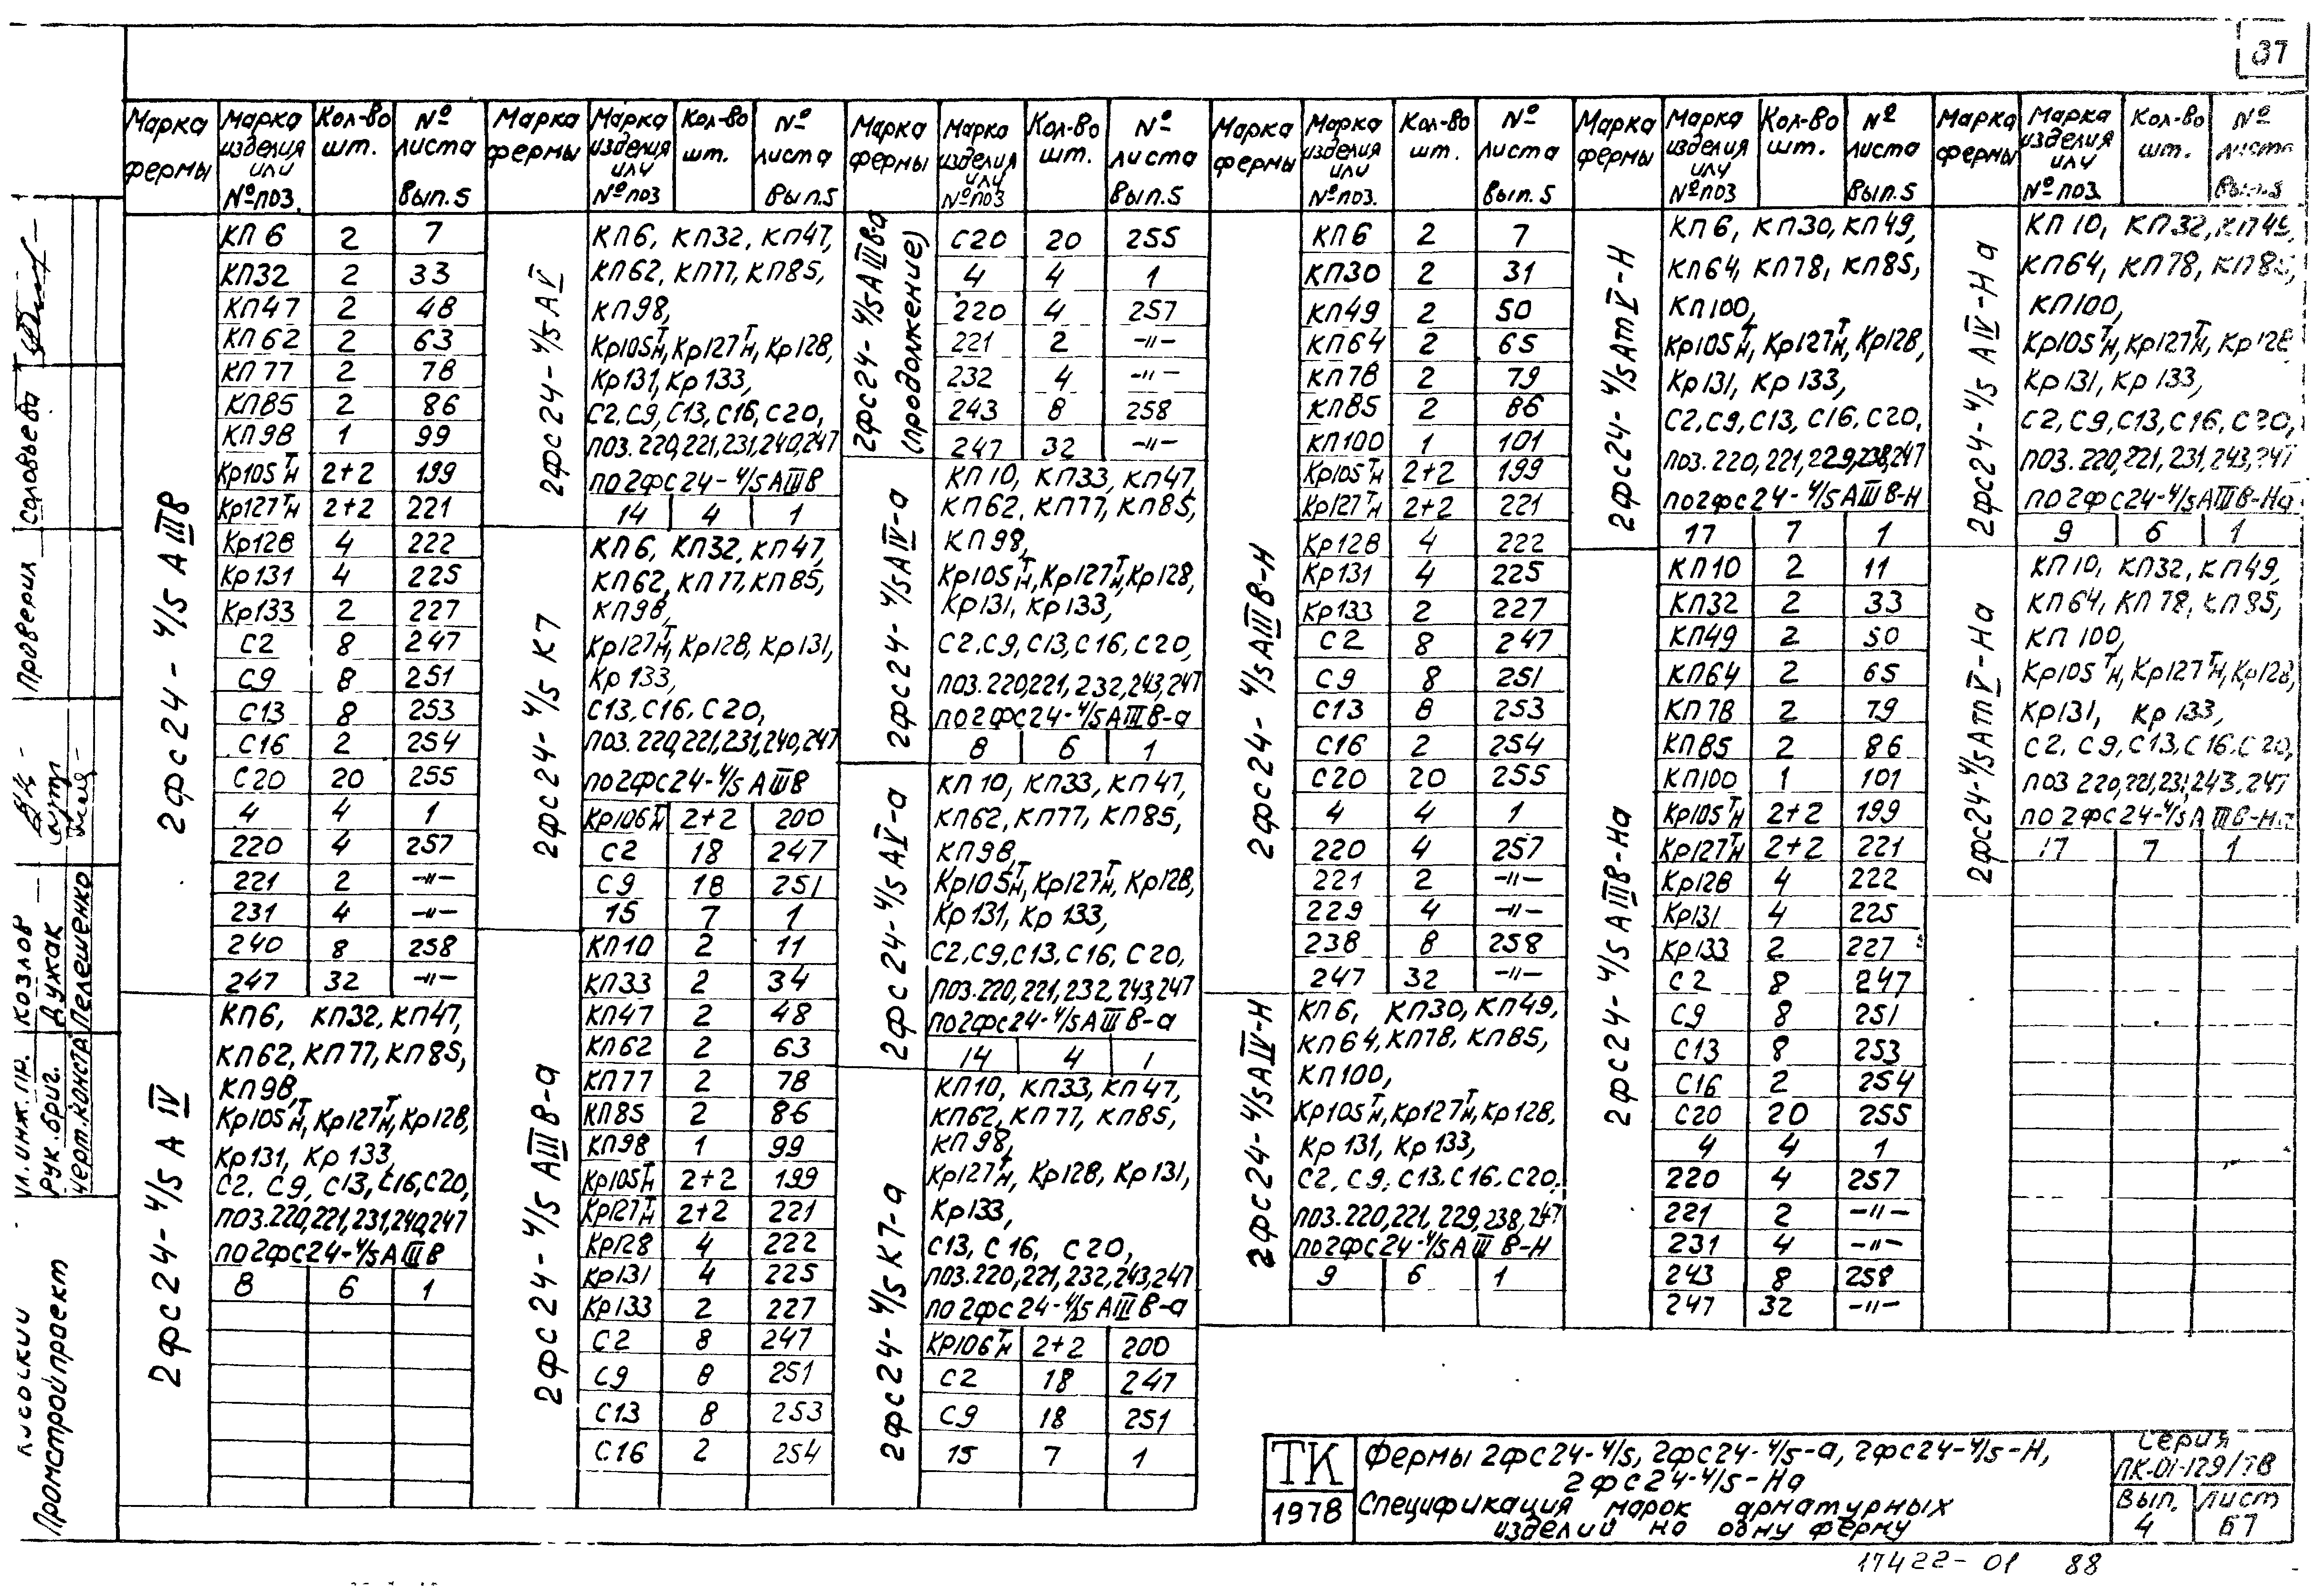 87
Марка фермы | Марка изделия или № поз. | Кол-во шт. | № листа Вып. 5
2фс24-4/5 АIIIВ
КП6 2 7
КП32 2 33
КП47 2 48
КП62 2 63
КП77 2 78
КП85 2 86
КП98 1 99
Кр105 Т/Н 2+2 199
Кр127 Т/Н 2+2 221
Кр128 4 222
Кр131 4 225
Кр133 2 227
С2 8 247
С9 8 251
С13 8 253
С16 2 254
С20 20 255
4 4 1
220 4 257
221 2 -"-
231 4 -"-
240 8 258
247 32 -"-
2фс24-4/5 АIV
КП6, КП32, КП47,
КП62, КП77, КП85,
КП98,
Кр105 Т/Н, Кр127 Т/Н, Кр128,
Кр131, Кр133,
С2, С9, С13, С16, С20,
поз. 220, 221, 231, 240, 247
по 2фс24-4/5 АIIIВ
8 6 1
Марка фермы | Марка изделия или № поз | Кол-во шт. | № листа Вып. 5
2фс24-4/5 АV
КП6, КП32, КП47,
КП62, КП77, КП85,
КП98,
Кр105 Т/Н, Кр127 Т/Н, Кр128,
Кр131, Кр133,
С2, С9, С13, С16, С20,
поз. 220, 221, 231, 240, 247
по 2фс24-4/5 АIIIВ
14 4 1
2фс24-4/5 К7
КП6, КП32, КП47,
КП62, КП77, КП85,
КП98,
Кр127 Т/Н, Кр128, Кр131,
Кр133,
С13, С16, С20,
поз. 220, 221, 231, 240, 247
по 2фс24-4/5 АIIIВ
Кр106 Т/Н 2+2 200
С2 18 247
С9 18 251
15 7 1
2фс24-4/5 АIIIВ-а
КП10 2 11
КП33 2 34
КП47 2 48
КП62 2 63
КП77 2 78
КП85 2 86
КП98 1 99
Кр105 Т/Н 2+2 199
Кр127 Т/Н 2+2 221
Кр128 4 222
Кр131 4 225
Кр133 2 227
С2 8 247
С9 8 251
С13 8 253
С16 2 254
Марка фермы | Марка изделия или № поз | Кол-во шт. | № листа Вып. 5
2фс24-4/5 АIIIВ-а (продолжение)
С20 20 255
4 4 1
220 4 257
221 2 -"-
232 4 -"-
243 8 258
247 32 -"-
2фс24-4/5 АIV-а
КП10, КП33, КП47,
КП62, КП77, КП85,
КП98,
Кр105 Т/Н, Кр127 Т/Н, Кр128,
Кр131, Кр133,
С2, С9, С13, С16, С20,
поз. 220, 221, 232, 243, 247
по 2фс24-4/5 АIIIВ-а
8 6 1
2фс24-4/5 АV-а
КП10, КП33, КП47,
КП62, КП77, КП85,
КП98,
Кр105 Т/Н, Кр127 Т/Н, Кр128,
Кр131, Кр133,
С2, С9, С13, С16, С20,
поз. 220, 221, 232, 243, 247
по 2фс24-4/5 АIIIВ-а
14 4 1
2фс24-4/5 К7-а
КП10, КП33, КП47,
КП62, КП77, КП85,
КП98,
Кр127 Т/Н, Кр128, Кр131,
Кр133,
С13, С16, С20,
поз. 220, 221, 232, 243, 247
по 2фс24-4/5 АIIIВ-а
Кр106 Т/Н 2+2 200
С2 18 247
С9 18 251
15 7 1
Марка фермы | Марка изделия или № поз. | Кол-во шт. | № листа Вып. 5
2фс24-4/5 АIIIВ-Н
КП6 2 7
КП30 2 31
КП49 2 50
КП64 2 65
КП78 2 79
КП85 2 86
КП100 1 101
Кр105 Т/Н 2+2 199
Кр127 Т/Н 2+2 221
Кр128 4 222
Кр131 4 225
Кр133 2 227
С2 8 247
С9 8 251
С13 8 253
С16 2 254
С20 20 255
4 4 1
220 4 257
221 2 -"-
229 4 -"-
238 8 258
247 32 -"-
2фс24-4/5 АIV-Н
КП6, КП30, КП49,
КП64, КП78, КП85,
КП100,
Кр105 Т/Н, Кр127 Т/Н, Кр128,
Кр131, Кр133,
С2, С9, С13, С16, С20,
поз. 220, 221, 229, 238, 247
по 2фс24-4/5 АIIIВ-Н
9 6 1
Марка фермы | Марка изделия или № поз | Кол-во шт. | № листа Вып. 5
2фс24-4/5 АтV-Н
КП6, КП30, КП49,
КП64, КП78, КП85,
КП100,
Кр105 Т/Н, Кр127 Т/Н, Кр128,
Кр131, Кр133,
С2, С9, С13, С16, С20,
поз. 220, 221, 229, 238, 247
по 2фс24-4/5 АIIIВ-Н
17 7 1
2фс24-4/5 АIIIВ-На
КП10 2 11
КП32 2 33
КП49 2 50
КП64 2 65
КП78 2 79
КП85 2 86
КП100 1 101
Кр105 Т/Н 2+2 199
Кр127 Т/Н 2+2 221
Кр128 4 222
Кр131 4 225
Кр133 2 227
С2 8 247
С9 8 251
С13 8 253
С16 2 254
С20 20 255
4 4 1
220 4 257
221 2 -"-
231 4 -"-
243 8 258
247 32 -"-
Марка фермы | Марка изделия или № поз. | Кол-во шт. | № листа Вып. 5
2фс24-4/5 АIV-На
КП10, КП32, КП49,
КП64, КП78, КП85,
КП100,
Кр105 Т/Н, Кр127 Т/Н, Кр128,
Кр131, Кр133,
С2, С9, С13, С16, С20,
поз. 220, 221, 231, 243, 247
по 2фс24-4/5 АIIIВ-На
9 6 1
2фс24-4/5 АтV-На
КП10, КП32, КП49,
КП64, КП78, КП85,
КП100,
Кр105 Т/Н, Кр127 Т/Н, Кр128,
Кр131, Кр133,
С2, С9, С13, С16, С20,
поз. 220, 221, 231, 243, 247
по 2фс24-4/5 АIIIВ-На
17 7 1
Проверил Соловьева
Гл. инж. пр. Козлов
Рук. бриг. Дужак
Черт. конст. Пелешенко
Промстройпроект
ТК
1978
Фермы 2фс24-4/5, 2фс24-4/5-а, 2фс24-4/5-Н,
2фс24-4/5-На
Спецификация марок арматурных
изделий на одну ферму
Серия
ПК-01-129/78
Вып. 4
Лист 67
17422-01 88